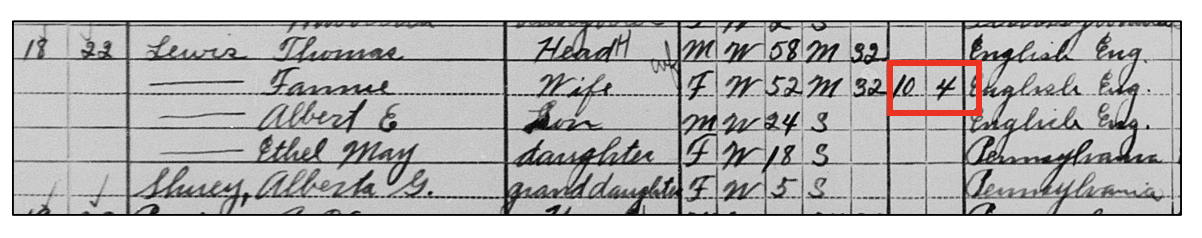 F W 2 S
18 22 Lewis Thomas Head H M W 58 M 32 English Eng.
— Fannie Wife F W 52 M 32 10 4 English Eng.
— Albert E Son M W 24 S English Eng.
— Ethel May daughter F W 18 S Pennsylvania
Shurey, Alberta G. granddaughter F W 5 S Pennsylvania